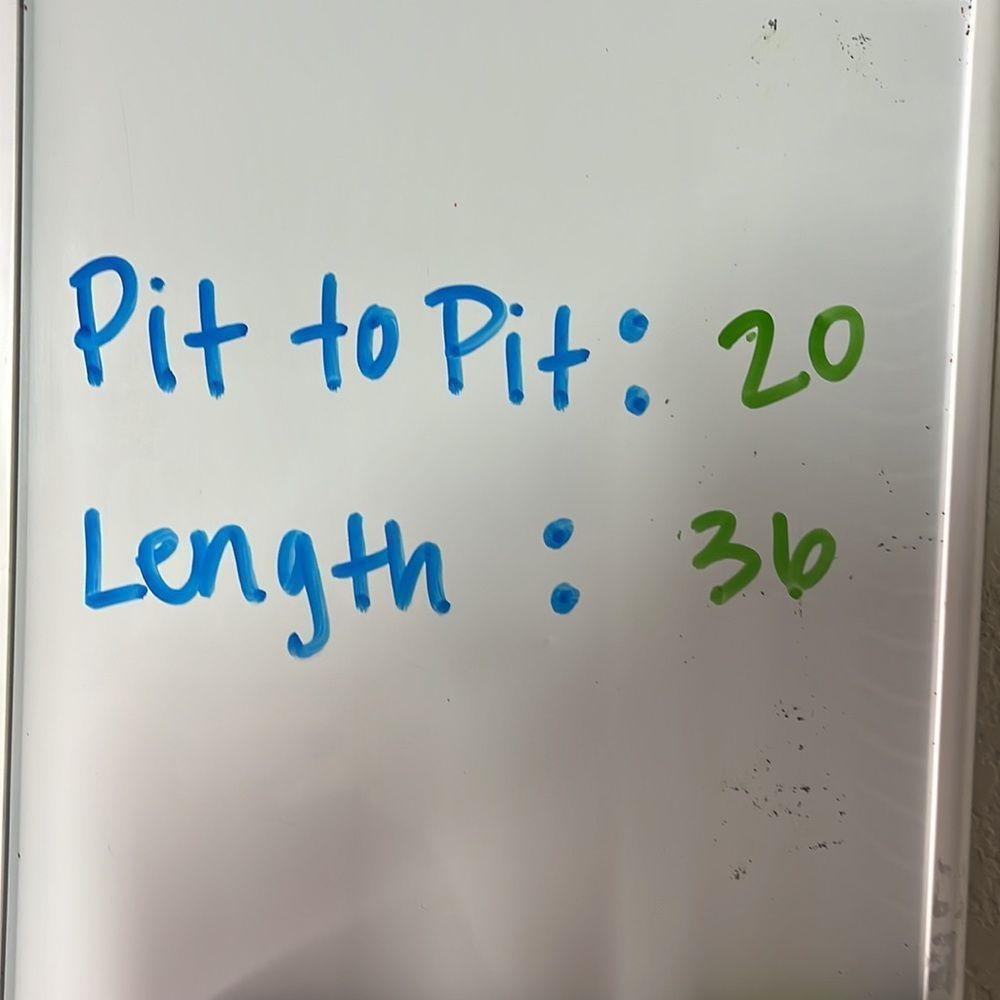 Pit to Pit: 20
Length : 36